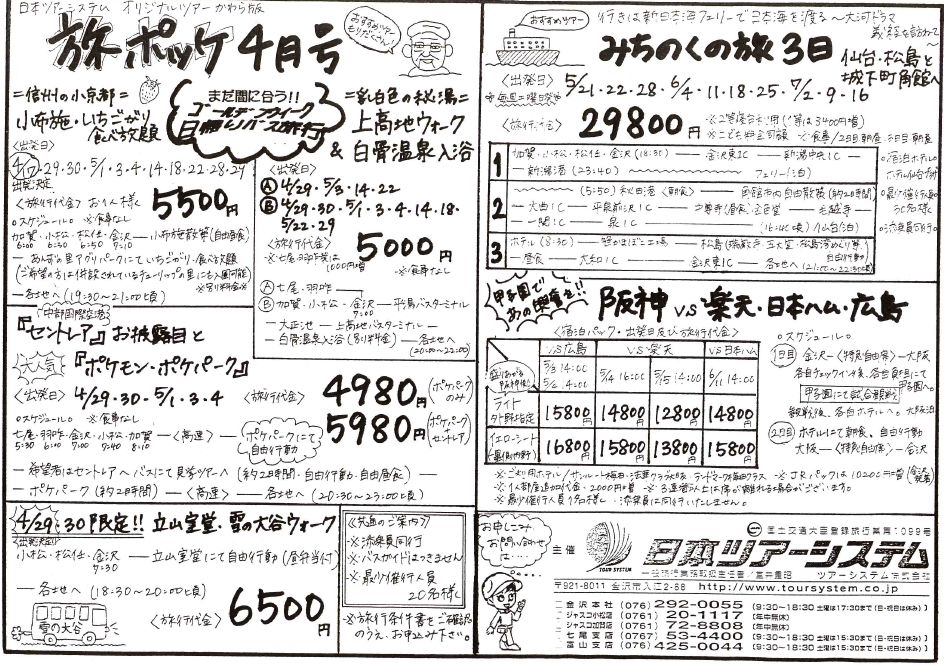 日本ツアーシステム オリジナルツアー かわら版
旅ポッケ 4月号
おすすめツアー
もりだくさん!
=信州の小京都=
小布施・いちごがり
食べ放題
まだ間に合う!!
ゴールデンウィーク
日帰りバス旅行
=乳白色の秘湯=
上高地ウォーク
& 白骨温泉入浴
<出発日>
29・30・5/1・3・4・14・18・22・28・29
出発決定
<旅行代金> お1人様
5500円
○スケジュール○ ※食事なし
加賀・小松・松任・金沢 ― 小布施散策(自由昼食)
6:00 6:30 6:50 7:10
― あんずの里アグリパークにていちごがり・食べ放題
(ご希望の方は併設されているチューリップの里にも入園可能)
※別料金※
― 各地へ(19:30~21:00頃)
<出発日>
Ⓐ 4/29・5/3・14・22
Ⓑ 4/29・30・5/1・3・4・14・18・
5/22・29
<旅行代金>
5000円
※七尾・羽咋発は
1000円増
※食事なし
Ⓐ 七尾・羽咋
Ⓑ 加賀・小松・金沢 ― 平湯バスターミナル
― 大正池 ― 上高地バスターミナル
― 白骨温泉入浴(別料金) ― 各地へ
(20:00~22:00)
中部国際空港
『セントレア』お披露目と
大人気
『ポケモン・ポケパーク』
<出発日> 4/29・30・5/1・3・4
<旅行代金>
4980円(ポケパークのみ)
5980円(ポケパーク セントレア)
○スケジュール○ ※食事なし
七尾・羽咋・金沢・小松・加賀 ― <高速> ― ポケパークにて
自由行動
5:30 6:00 7:00 7:40 8:10
― 希望者はセントレアへ バスにて見学ツアーへ (約2時間・自由行動・自由昼食)
― ポケパーク(約2時間) ― <高速> ― 各地へ (20:30~23:00頃)
4/29・30限定!! 立山室堂・雪の大谷ウォーク
出発決定!!
小松・松任・金沢 ― 立山室堂にて自由行動(昼弁当付)
7:30
― 各地へ (18:30~20:00頃)
<旅行代金>
6500円
雪の大谷
≪共通のご案内≫
※添乗員同行
※バスガイドはつきません
※最少催行人員
20名様
※旅行条件書をご確認
のうえ、お申込み下さい。
おすすめツアー
行きは新日本海フェリーで日本海を渡る~大河ドラマ
義経を訪ねて~
みちのくの旅 3日
仙台・松島と
城下町角館へ
<出発日>
毎週土曜日発
5/21・22・28・6/4・11・18・25・7/2・9・16
<旅行代金>
29800円
1 加賀・小松・松任・金沢 (18:30) ― 金沢東IC ― 新潟中央IC
― 新潟港 (23:40) フェリー(泊)
2 (5:50) 秋田港 <朝食> ― 角館市内自由散策(約2時間)
― 大曲IC ― 平泉前沢IC ― 中尊寺(昼食・金色堂) ― 毛越寺
― 一関IC ― 泉IC (16:40頃) 仙台(泊)
3 ホテル(8:30) ― 笹かまぼこ工場 ― 松島(瑞巌寺・五大堂・松島湾めぐり等)
自由行動
― 昼食 ― 大和IC ― 金沢東IC ― 各地へ
(21:00~22:30頃)
○宿泊ホテル
○最少催行人員
30名様
○添乗員同行○
甲子園で
あの興奮を!!
阪神 VS 楽天・日本ハム・広島
<宿泊パック・出発日及び旅行代金>
VS広島 VS楽天 VS日本ハム
5/3 14:00 5/14 16:00 5/15 14:00 6/11 14:00
ライト
外野指定 15800円 14800円 12800円 14800円
イエローシート 16800円 15800円 13800円 15800円
○スケジュール○
1日目 金沢 ― <特急自由席> ― 大阪
各自チェックイン後、各自負担にて
甲子園へ。
甲子園にて試合観戦
観戦後、各自ホテルへ。大阪泊
2日目 ホテルにて朝食、自由行動
大阪 ― <特急自由席> ― 金沢
※1人部屋追加代金、2000円増 ※3連番以上は席が離れる場合がございます。
※最少催行人員1名様 ※添乗員は同行いたしません。
お申し込み
お問い合せは……
主催
TOUR SYSTEM
国土交通大臣登録旅行業第1099号
日本ツアーシステム
一般旅行業務取扱主任者/室井重昭 ツアーシステム株式会社
〒921-8011 金沢市入江2-88 http://www.toursystem.co.jp
金沢本社 (076) 292-0055 (9:30~18:30 土曜は17:30まで(日・祝日は休み))
ジャスコ小松店 (0761) 20-1117 (年中無休)
ジャスコ加賀店 (0761) 72-8808 (年中無休)
七尾支店 (0767) 53-4400 (9:30~18:30 土曜は15:30まで(日・祝日は休み))
富山支店 (076) 425-0044 (9:30~18:30 土曜は15:30まで(日・祝日は休み))